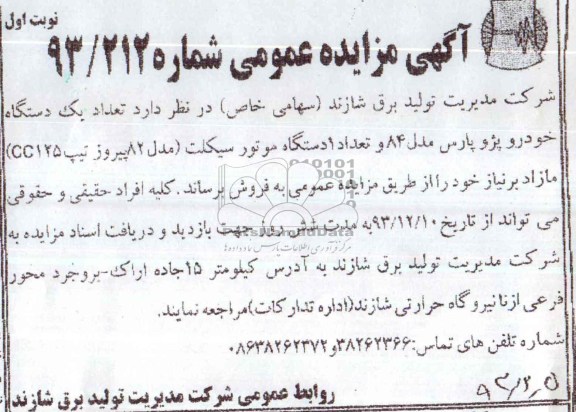 نوبت اول
آگهی مزایده عمومی شماره ۹۳/۲۱۲
شرکت مدیریت تولید برق شازند (سهامی خاص) در نظر دارد تعداد یک دستگاه
خودرو پژو پارس مدل ۸۴ و تعداد ۱دستگاه موتور سیکلت (مدل ۸۲پیروز تیپ CC۱۲۵)
مازاد برنیاز خود را از طریق مزایده عمومی به فروش برساند. کلیه افراد حقیقی و حقوقی
می تواند از تاریخ ۹۳/۱۲/۱۰به مدت شش روز جهت بازدید و دریافت اسناد مزایده به
شرکت مدیریت تولید برق شازند به آدرس کیلومتر ۱۵جاده اراک-بروجرد محور
فرعی ازنا نیروگاه حرارتی شازند(اداره تدارکات)مراجعه نمایند.
شماره تلفن های تماس:۳۸۲۶۲۳۶۶و۰۸۶۳۸۲۶۲۳۷۲
روابط عمومی شرکت مدیریت تولید برق شازند